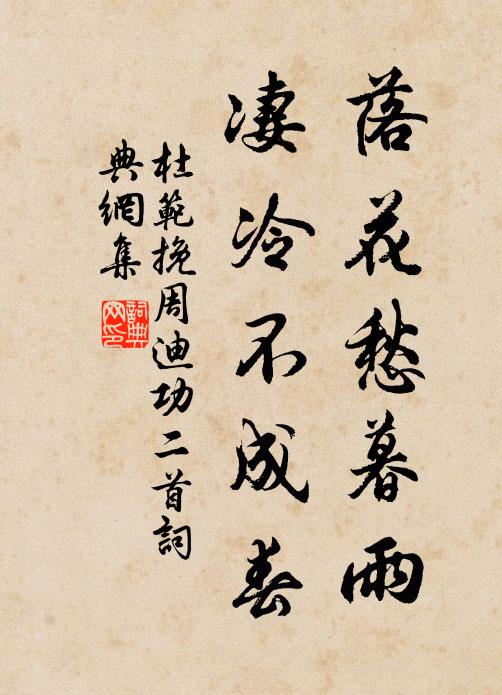 落花愁暮雨
凄冷不成春
杜範挽周迪功二首詞
典網集
詞典
网印